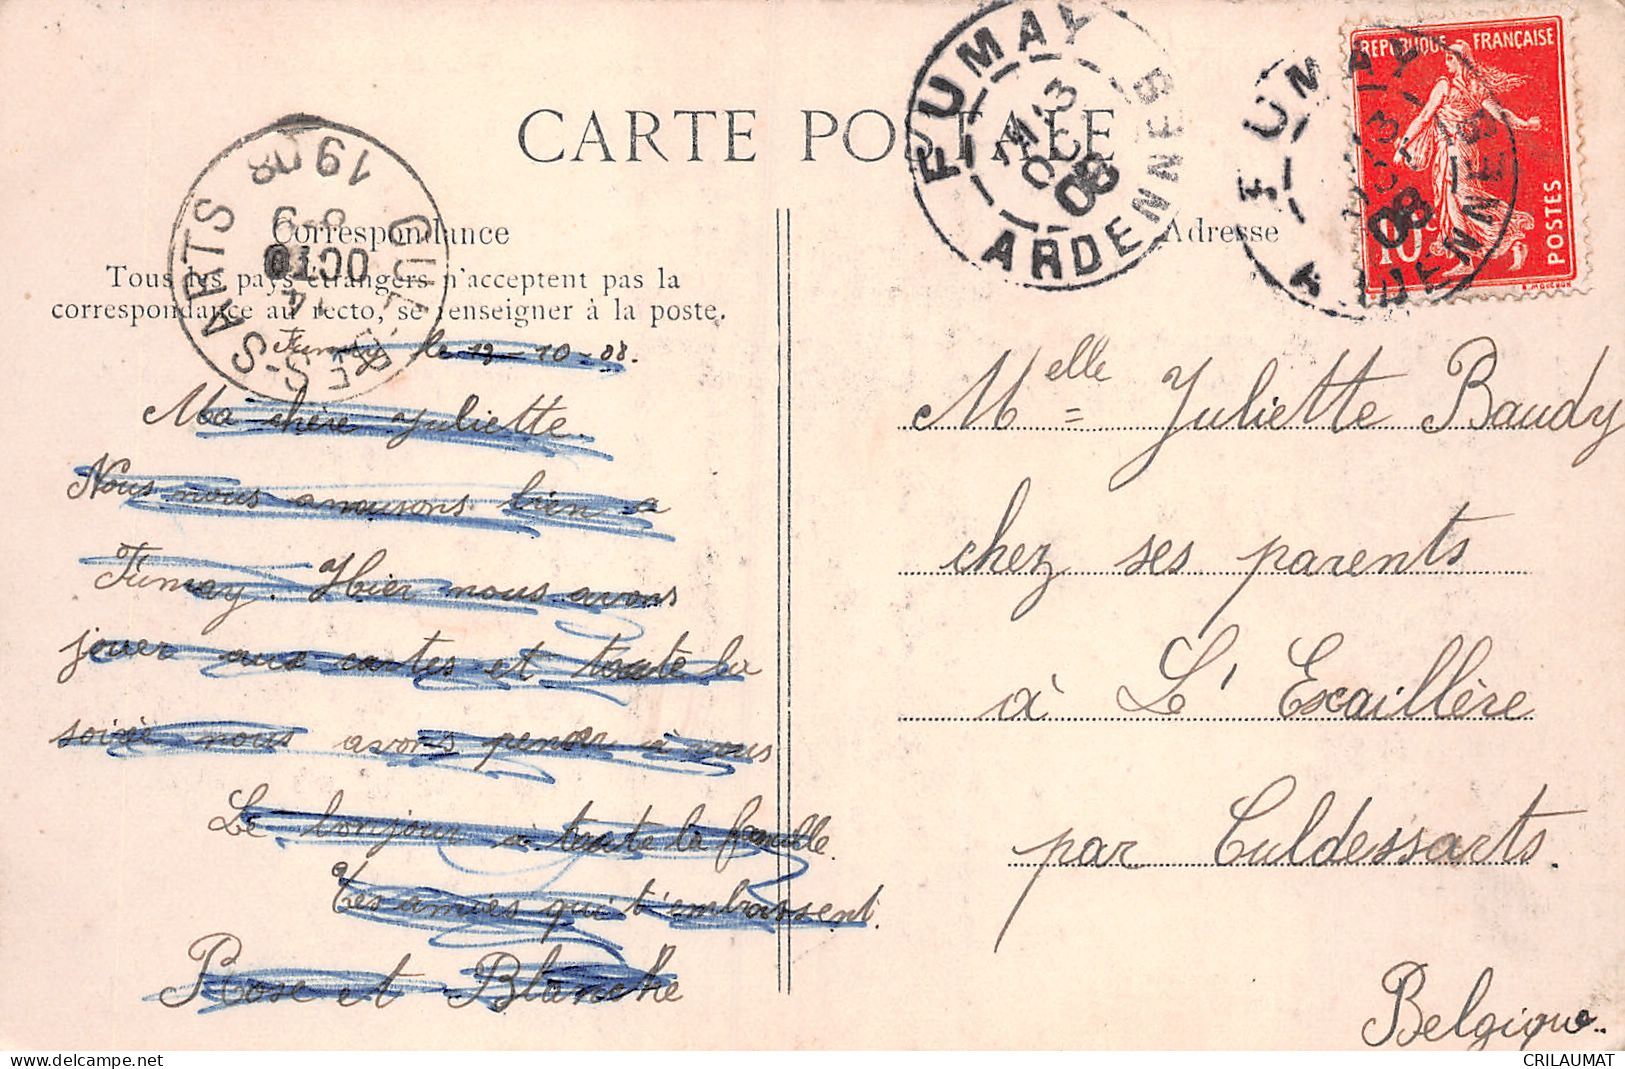 CARTE POSTALE
Correspondance
Tous les pays étrangers n'acceptent pas la
correspondance au recto, se renseigner à la poste.
Fumay le 13-10-08.
Ma chère Juliette.
Nous nous amusons bien a
Fumay. Hier nous avons
jouer aux cartes et toute la
soirée nous avons penser à vous
Le bonjour à toute la famille.
Tes amies qui t'embrassent.
Rose et Blanche
Adresse
Melle Juliette Baudy
chez ses parents
à L'Escaillère
par Culdessarts.
Belgique..
FUMAY
13
OCT
08
ARDENNES
FUMAY
13
08
ARDENNES
REPUBLIQUE FRANÇAISE
10c
POSTES
CUL-DES-SARTS
1908
OCTO
CRILAUMAT